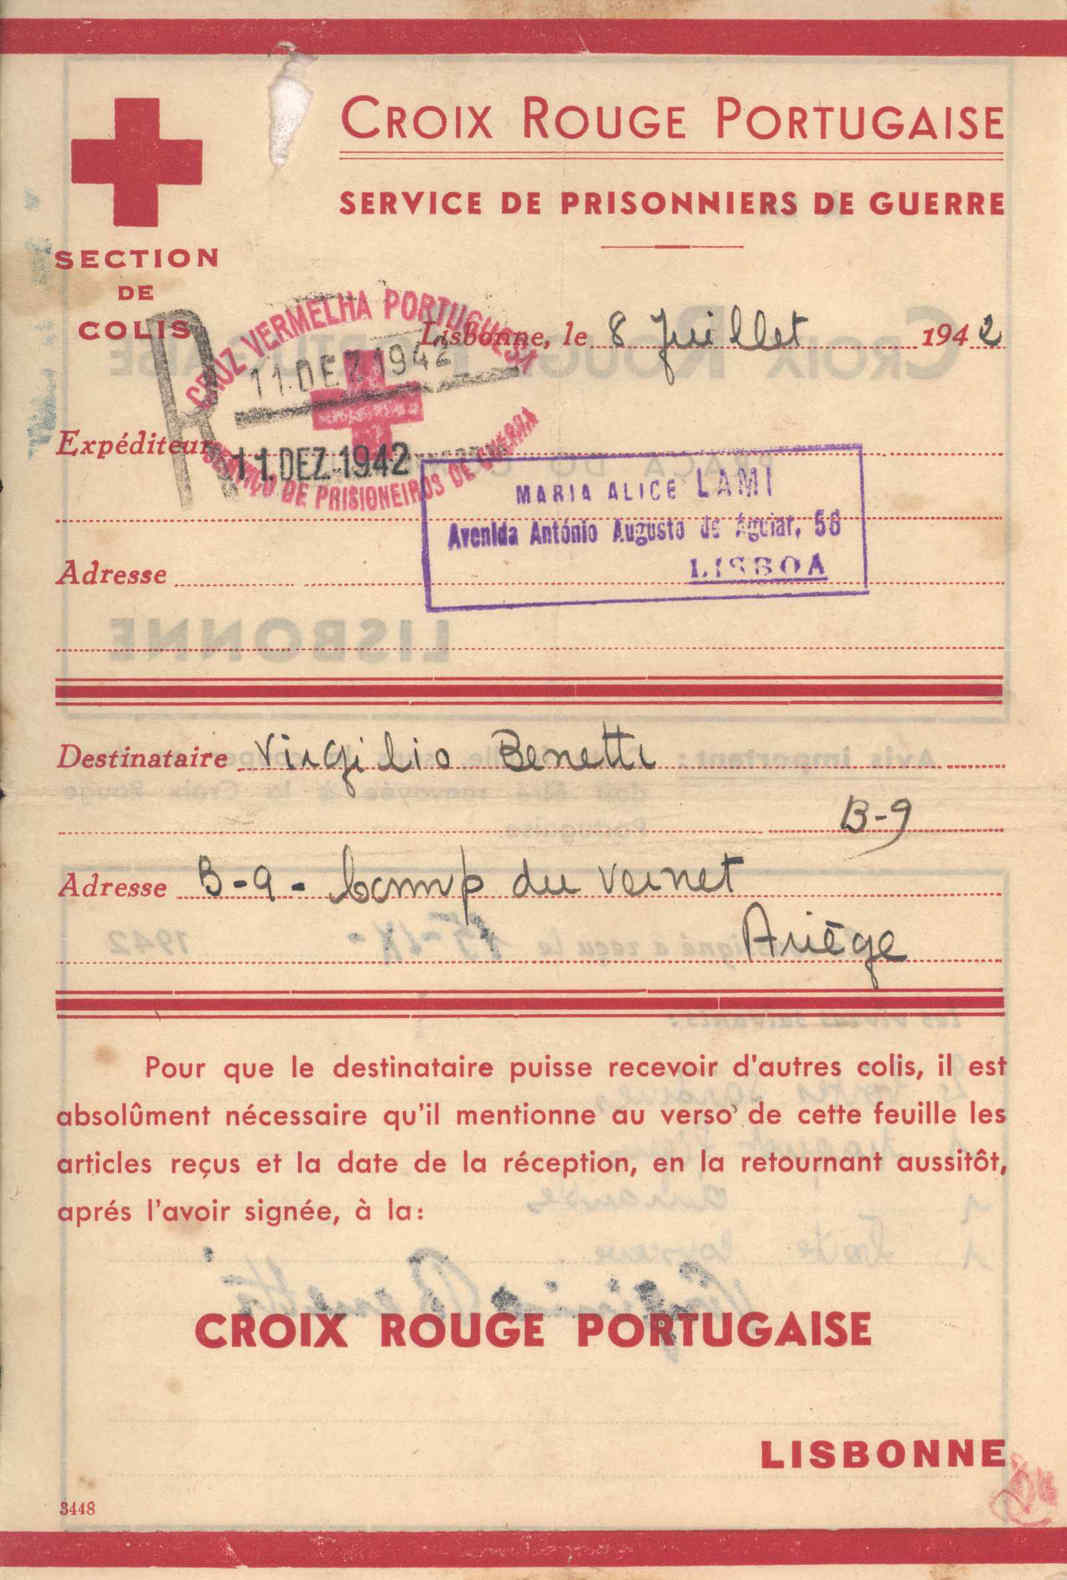 CROIX ROUGE PORTUGAISE
SERVICE DE PRISONNIERS DE GUERRE
SECTION
DE
COLIS
R
CRUZ VERMELHA PORTUGUESA
11.DEZ 1942
Lisbonne, le 8 Juillet 1942
Expéditeur
11.DEZ.1942
SERVIÇO DE PRISIONEIROS DE GUERRA
MARIA ALICE LAMI
Avenida António Augusto de Aguiar, 56
LISBOA
Adresse
Destinataire Virgilio Benetti
B-9
Adresse B-9 - Camp du Vernet
Ariège
Pour que le destinataire puisse recevoir d'autres colis, il est
absolûment nécessaire qu'il mentionne au verso de cette feuille les
articles reçus et la date de la réception, en la retournant aussitôt,
aprés l'avoir signée, à la:
CROIX ROUGE PORTUGAISE
LISBONNE
3448